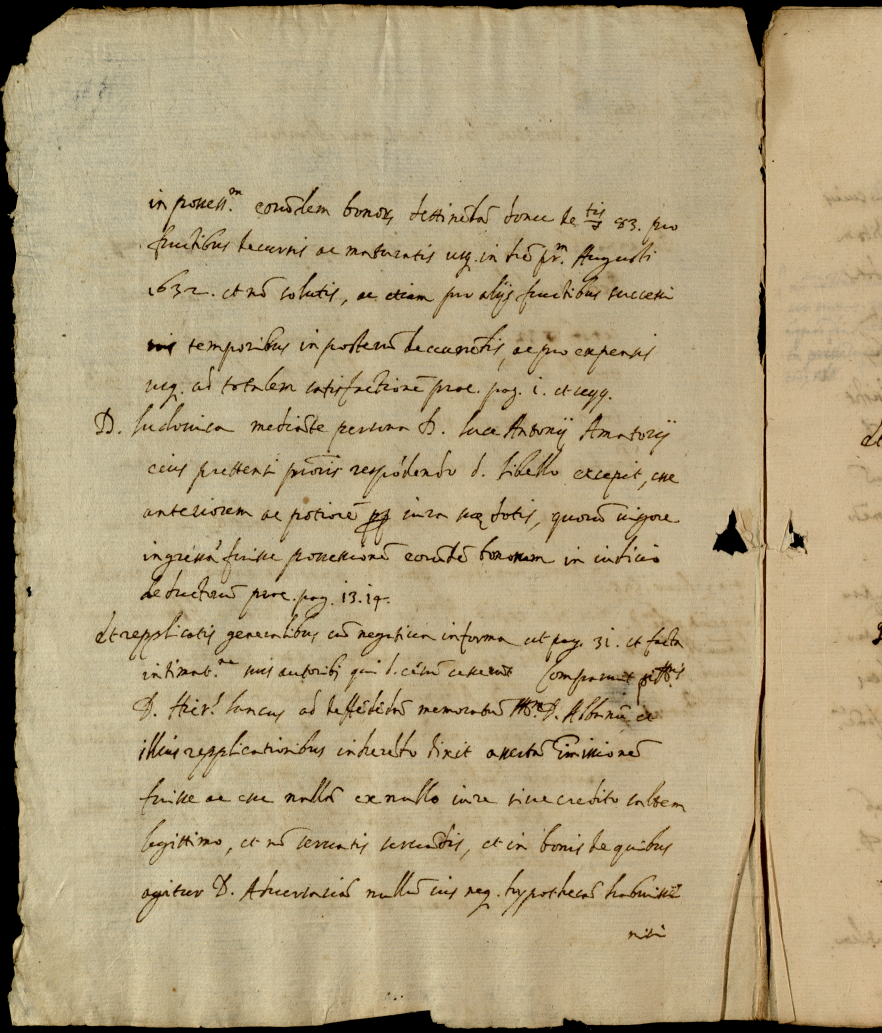 in possess.m eorūdem bonorꝫ destinetad donec de tis 83. pro
fructibus decursis ac maturatis usq. in diē pr.m Augusti
1632. et nō solutis, ac etiam pro alijs fructibus successi
temporibus in posterū decurrēdis, ac pro expensis
usq. ad totalem satisfactionē proc. pag. i. et seqq.
D. Ludovica mediāte persona D. Lucæ Antonij Amatorij
eius prettensi proris respōdendo d. libello excepit, esse
anteriorem ac potiorē iura suæ dotis, quorū vigore
ingressā fuisse possessionē eorūdē bonorum in iudicio
deductorū proc. pag. 13. 14.
Et repplicatis generalibus cū negativa in forma ut pag. 31. et facta
intimat.ne suis autoribꝫ qui d. cēsū cesserunt Comparuit
D. Hier.s Luncus ad deffēdēdū memoratum D. Albanū et
illius repplicationibus inherēdo dixit assertā īmissionē
fuisse ac esse nullā ex nullo iure sive credito saltem
legittimo, et nō servatis servādis, et in bonis de quibus
agitur D. Adversariā nullū ius neq. hyppothecā habuisse
nisi